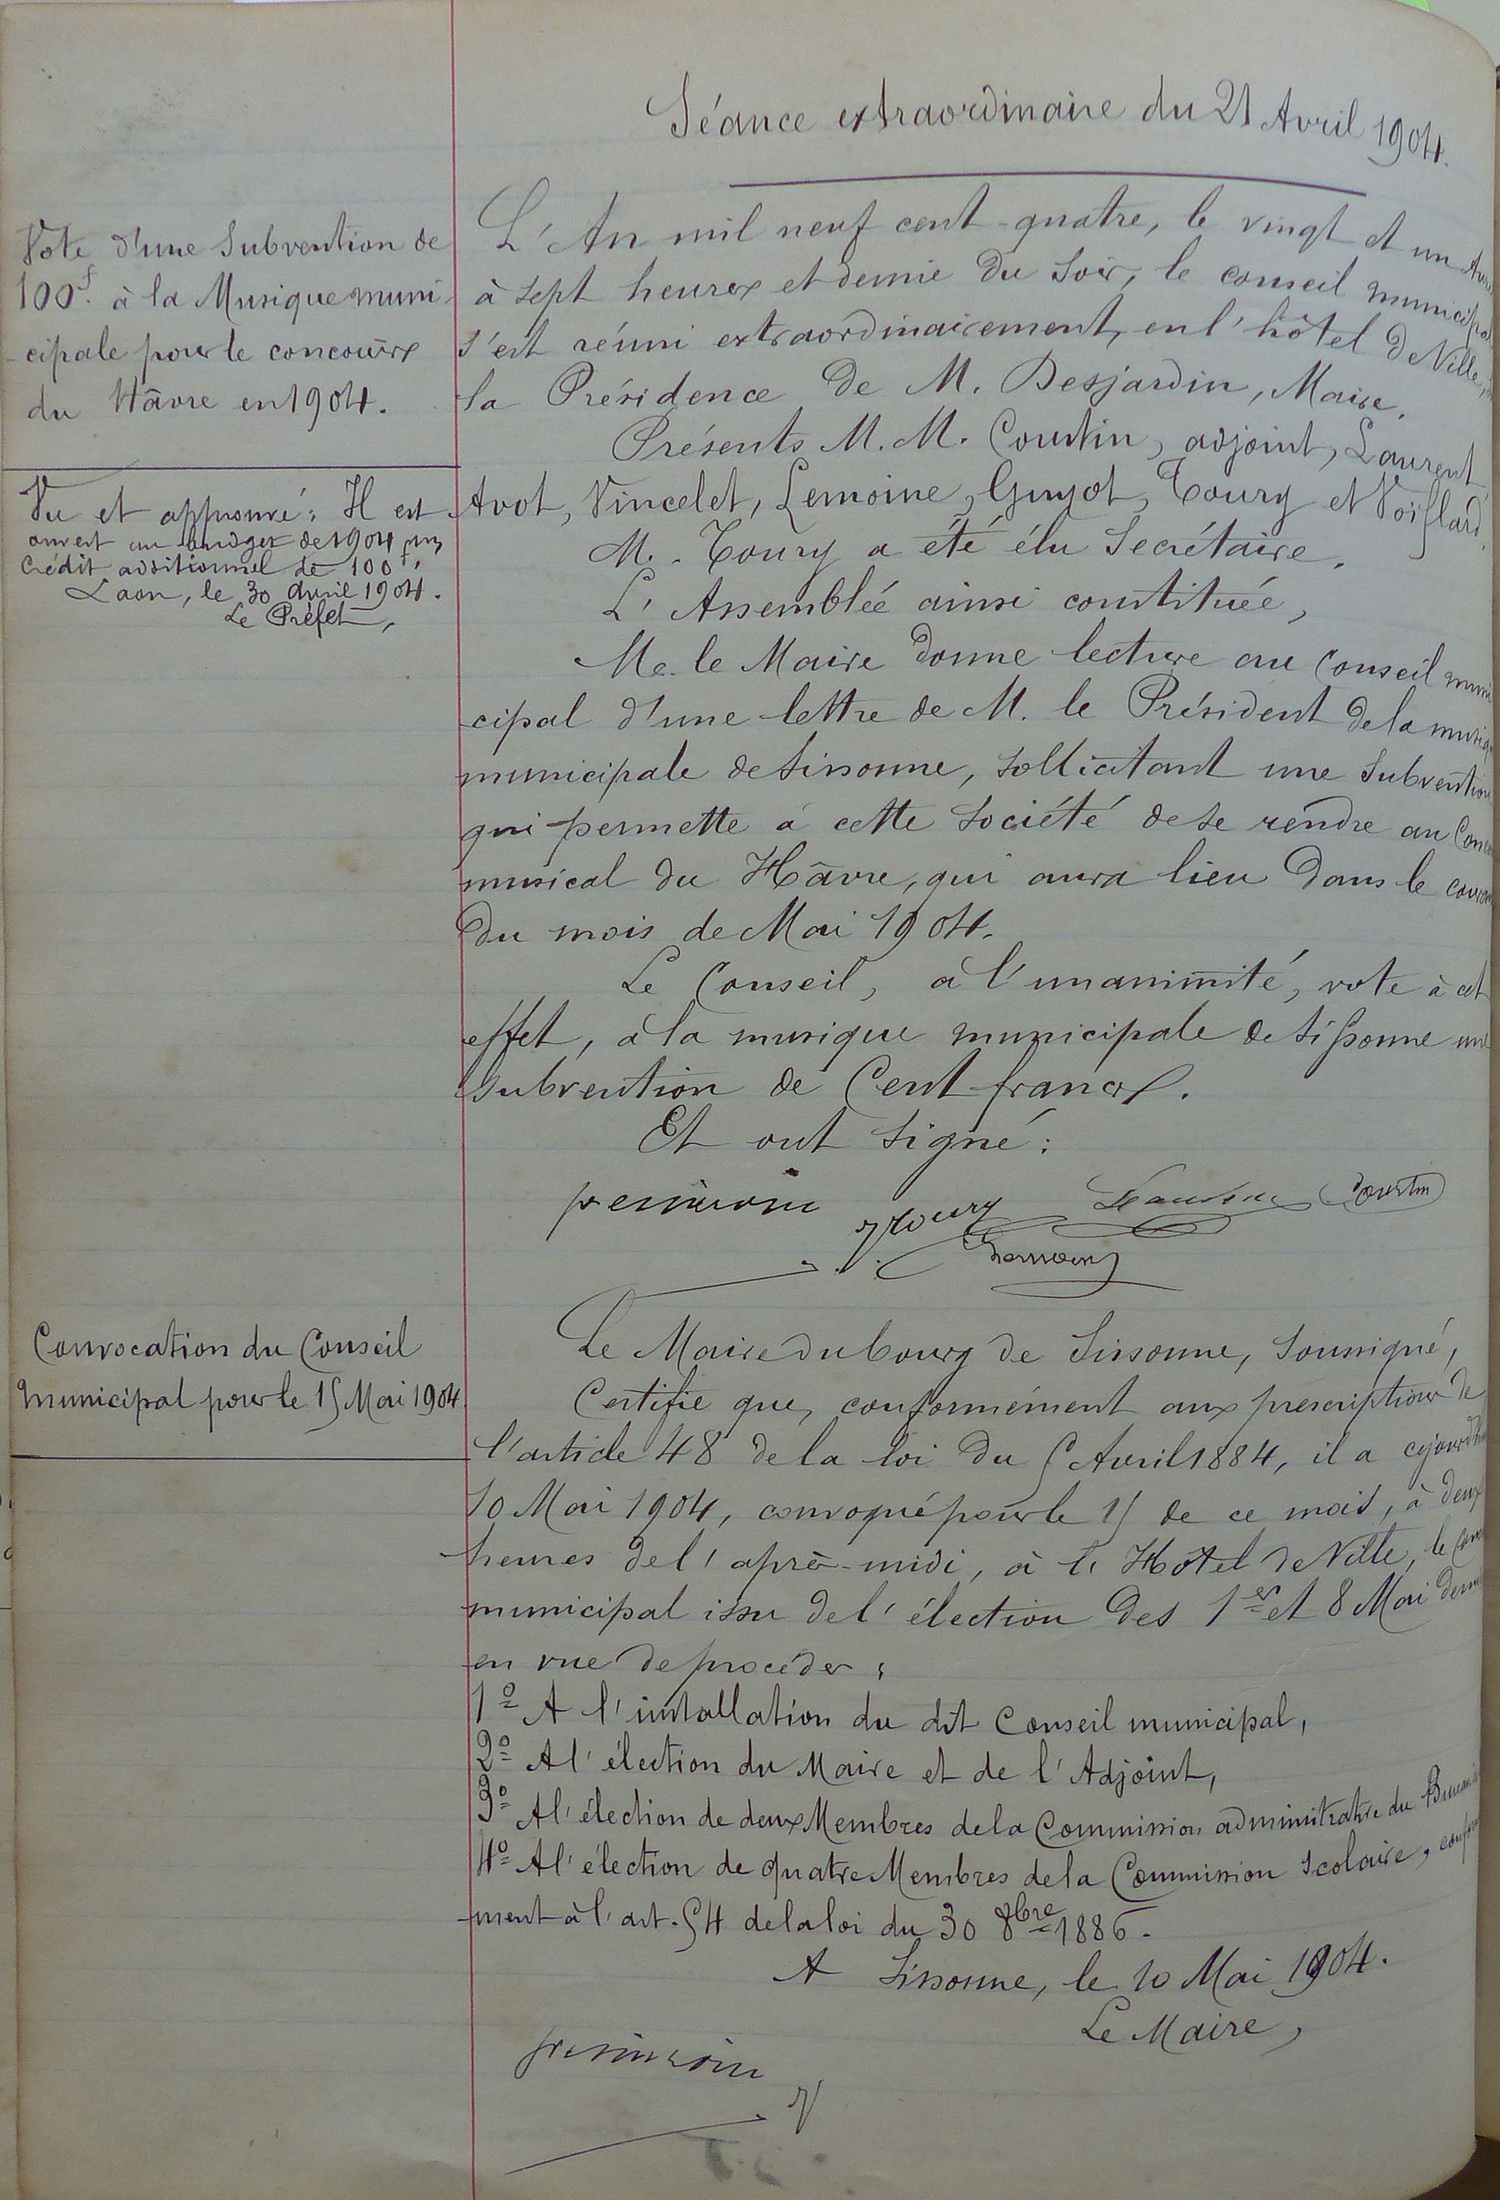 Séance extraordinaire du 21 Avril 1904.
Vote d'une Subvention de
100f. à la Musique muni
-cipale pour le concours
du Hâvre en 1904.
Vu et approuvé : Il est
ouvert au budget de 1904 un
Crédit additionnel de 100f,
Laon, le 30 avril 1904.
Le Préfet,
L'An mil neuf cent-quatre, le vingt et un
à sept heures et demie du soir, le conseil municipal
s'est réuni extraordinairement, en l'hôtel de Ville,
la Présidence de M. Desjardin, Maire.
Présents M. M. Courtin, adjoint, Laurent,
Avot, Vincelet, Lemoine, Guyot, Toury et Voiflard.
M. Toury a été élu Secrétaire.
L'Assemblée ainsi constituée,
M. le Maire donne lecture au Conseil muni
-cipal d'une lettre de M. le Président de la musiq
municipale de Sissonne, sollicitant une Subvention
qui permette à cette Société de se rendre au Conc
musical du Hâvre, qui aura lieu dans le couran
du mois de Mai 1904.
Le Conseil, à l'unanimité, vote à cet
effet, à la musique municipale de Sissonne une
subvention de Cent francs.
Et ont signé :
Toury Courtin
Lemoine
Convocation du Conseil
municipal pour le 15 Mai 1904
Le Maire du bourg de Sissonne, soussigné,
Certifie que, conformément aux prescriptions de
l'article 48 de la loi du 5 Avril 1884, il a cejourd'hui
10 Mai 1904, convoqué pour le 15 de ce mois, à deux
heures de l'après-midi, à l'Hôtel de Ville, le Con
municipal issu de l'élection des 1er et 8 Mai dern
en vue de procéder :
1º A l'installation du dit Conseil municipal,
2º A l'élection du Maire et de l'Adjoint,
3º A l'élection de deux Membres de la Commission administrative du Bureau
4º A l'élection de quatre Membres de la Commission Scolaire, confor
-ment à l'art. 54 de la loi du 30 8bre 1886.
A Sissonne, le 10 Mai 1904.
Le Maire,